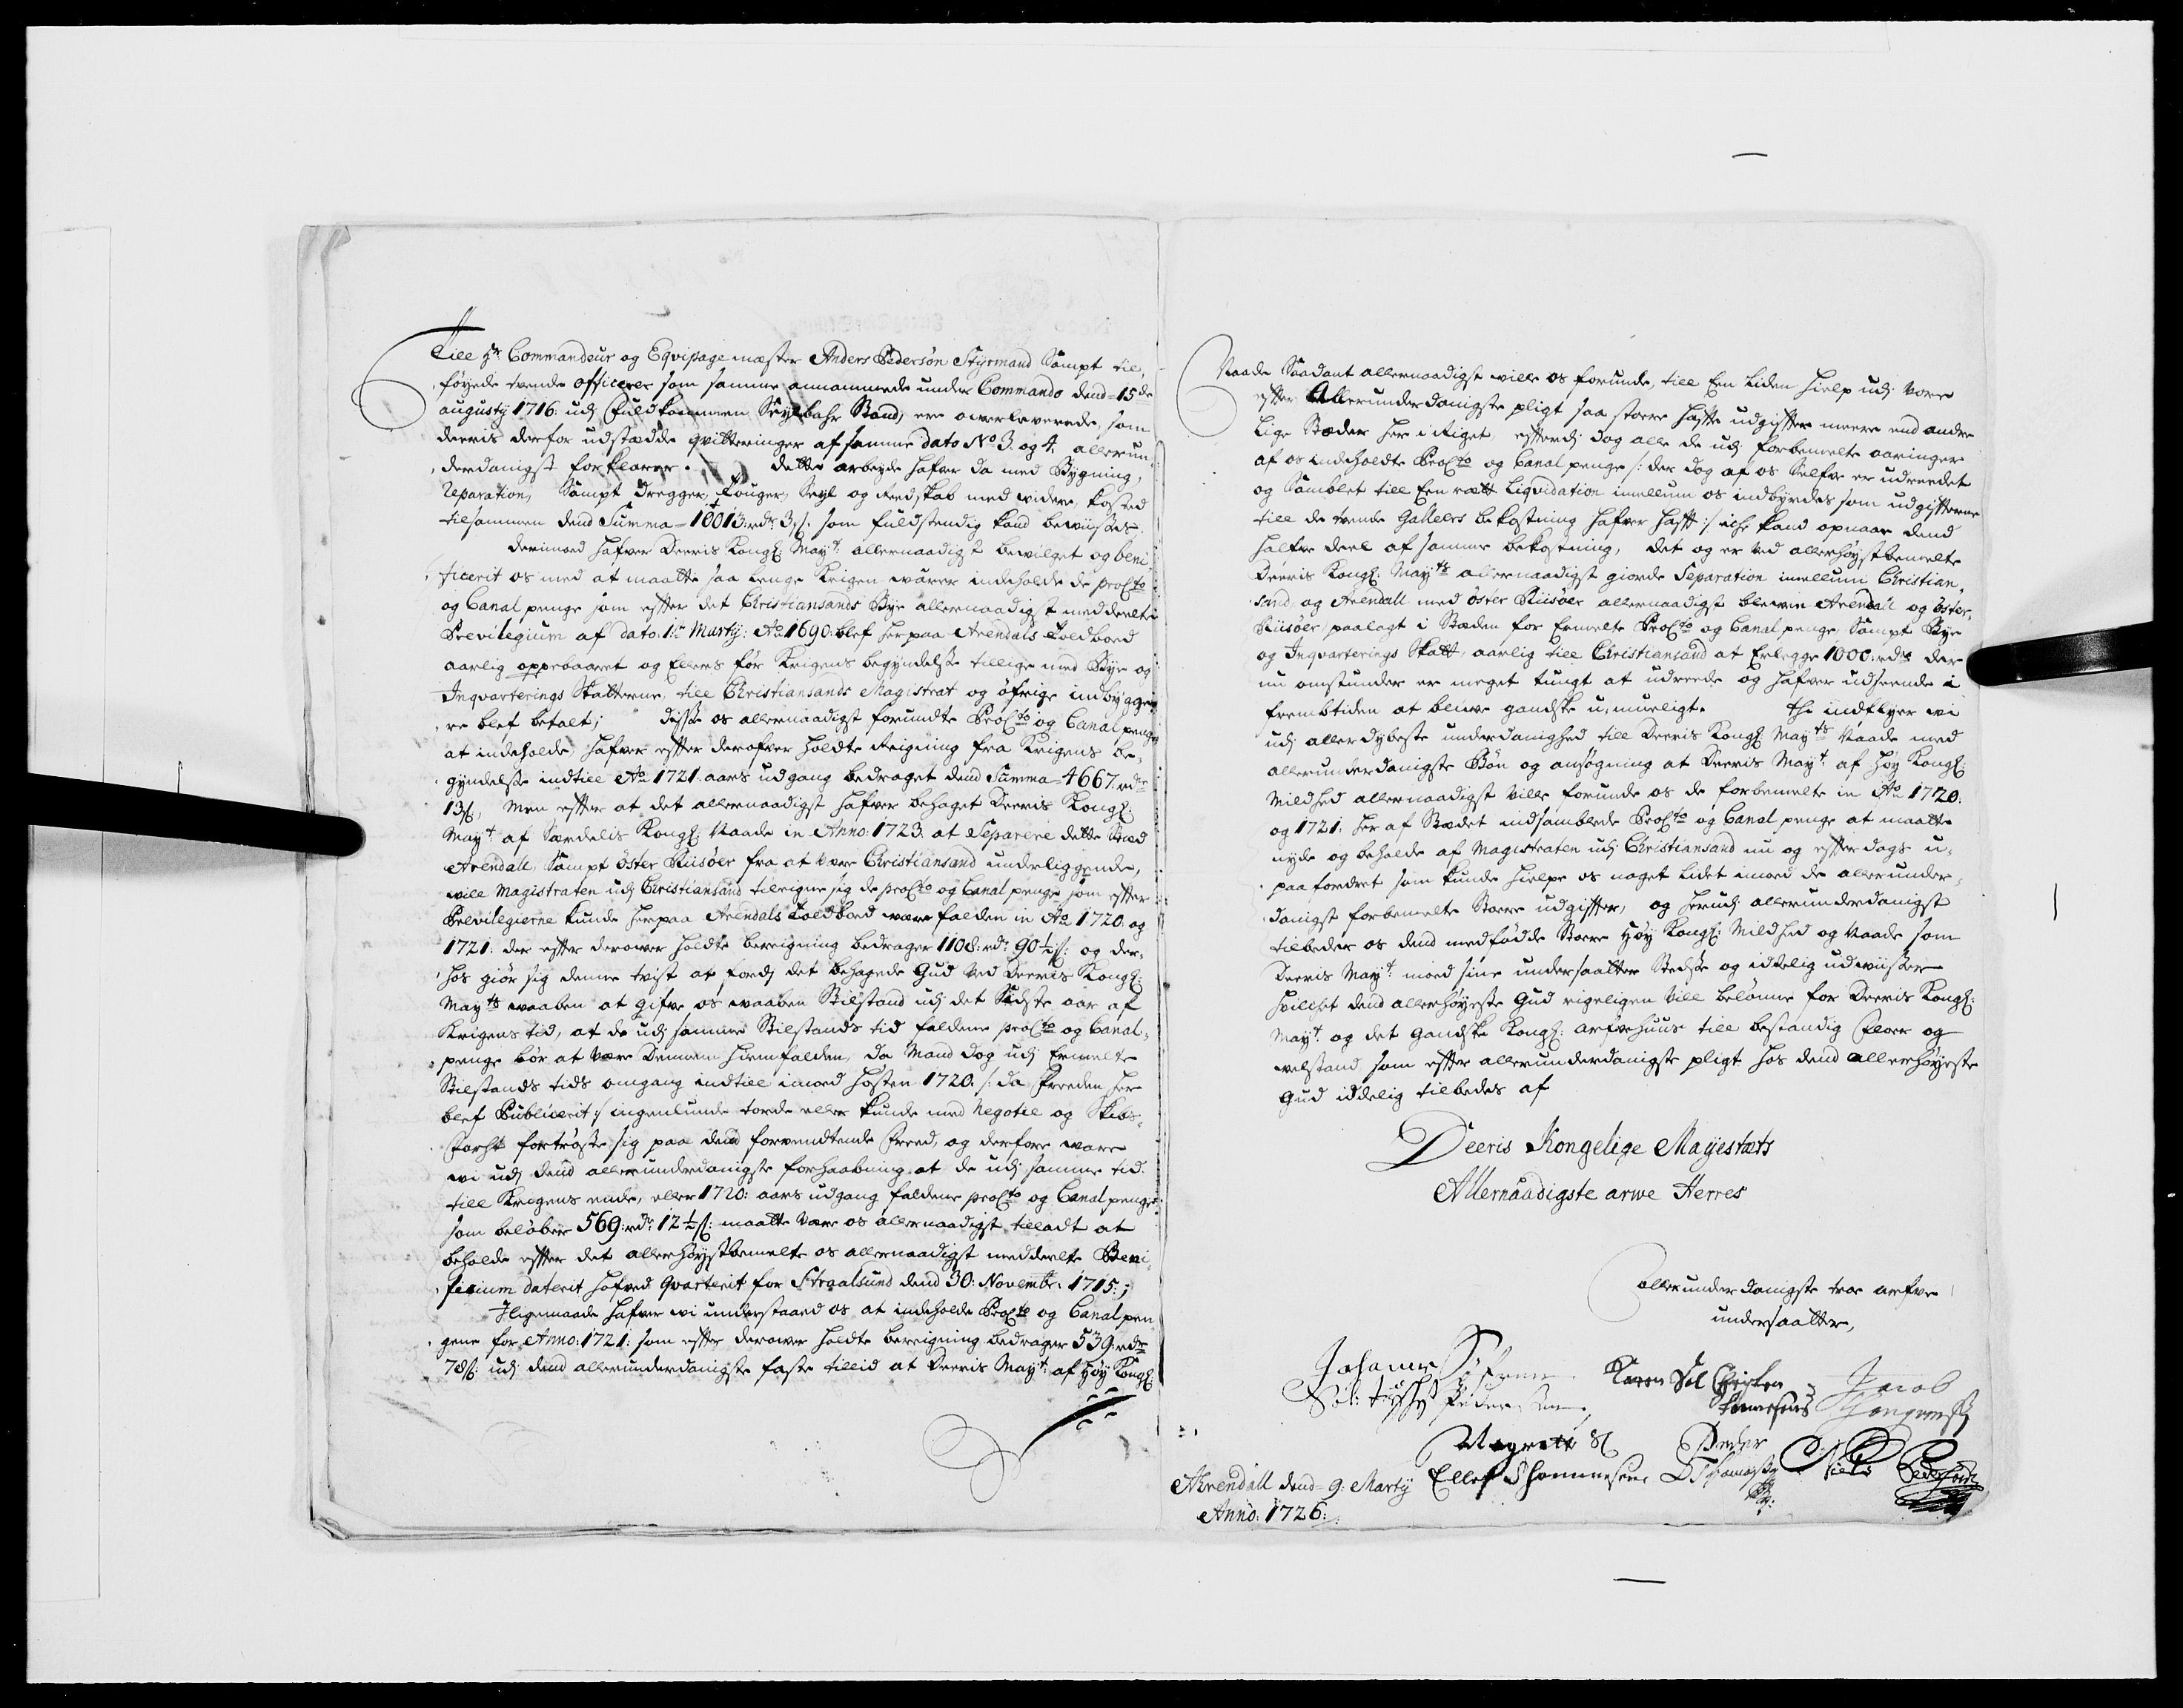 Till Hr Commandeur og Eqvipage mæster Anders Pedersøn Styrmand Sampt til,
føyede tvende officerer som samme annammede under Commando dend 15de
augusty 1716: udj Fuldkommen Seylbahr Stand, ere overleverede, som
deeris derfor udstædde qvitteringer af samme dato No 3 og 4. allerun
derdanigst forklarer. dette arbeyde hafver da med Bygning,
Reparation, Sampt Dregger, Touger, Seyl og Redskab med videre, kosted
tilsammen dend Summa = 10013: rdr 3 s. som fuldstendig kand beviises.
derimod hafver Deeris Kongl: Mayt: allernaadigst bevilget og beni,
ficerit os med at maatte saa lenge Krigen warer indeholde de procto
og Canal penge som effter det Christiansands Bye allernaadigst meddeelte
Previlegium af dato 1te Marty: Ao 1690: blef her paa Arendals Toldboed
aarlig oppebaaret og Ellers før Krigens begyndelse tillige med Bye og
Inqvarterings Skatterne, till Christiansands Magistrat og øfrige indbygge,
re blef betalt; disse os allernaadigst forundte Procto og Canal penge
at indeholde, hafver effter derofver holdte Reigning fra Krigens be,
gyndelse indtill Ao 1721. aars udgang bedraget dend Summa = 4667. rdr
13 s, Men effter at det allernaadigst hafver behaget Deeris Kongl:
Mayt: af Særdelis Kongl: Naade in Anno: 1723. at Separere dette Stæd
Arendall, Sampt øster Riisøer fra at være Christiansand underliggende,
will Magistraten udj Christiansand tileigne sig de procto og Canal penge som effter
Previlegierne kunde her paa Arendals Toldboed være falden in Ao 1720. og
1721. der effter derower holdte bereigning bedrager 1108: rdr 90½ s: og der,
hos giør sig denne tvist at, fordj det behagede Gud ved Deeris Kongl:
Mayts waaben at gifve os waaben Stilstand udj det Sidste aar af
Krigens tid, at de udj samme Stilstands tid faldene procto og Canal,
penge bør at være Dennem hiemfalden, da Mand dog udj Ermelte
Stilstands tids omgang indtill imod høsten 1720. /: da Freeden her
blef Publicerit :/ ingenlunde torde eller kunde med Negotie og Skibs,
Farht fortrøste sig paa dend forwendtende Freed, og derfore ware
wi udj dend allerunderdanigste forhaabning at de udj samme tid
till Krigens ende, eller 1720: aars udgang faldene procto og Canal penge
som beløber 569: rdr: 12½ s: maatte være os allernaadigst tilladt at
beholde effter det allerhøystbemelte os allernaadigst meddeelte Beni,
ficium daterit hofved qvarterit for Straalsund dend 30: Novembr: 1715.;
Jligemaade hafver wi understaaed os at indeholde Procto og Canal pen
gene for Anno: 1721: som effter derower holdte bereigning bedrager 539: rdr
78 s: udj dend allerunderdanigste faste tillid at Deeris Mayt: af Høy Kongl:
Naade Saadant allernaadigst wille os forunde, till Een liden hielp udj vore
effter Allerunderdanigste pligt saa store hafte udgiffter meere end andre
lige Stæder her i Riget, efterdj dog alle de udj forbemelte aaringer
af os indeholdte Procto og Canal penge /: der dog af os Selfve er udreedet
og Samblet till Een rætt Liqvidation imellum os indbyrdes som udgiffterne
till de tvende Galleers bekostning hafver hafft :/ iche kand opnaae dend
halfve deel af samme bekostning, det og er ved allerhøystbemelte
Deeris Kongl: Mayts allernaadigst giorde Separation imellum Christian,
sand og Arendall med øster Riisøer allernaadigst blewen Arendall og øster,
Riisøer paalagt i Stæden for Ermelte Procto og Canal penge, Sampt Bye
og Inqvarterings Skatt, aarlig till Christiansand at Erlegge 1000: rdr der
nu omstunder er meget tungt at udreede og hafver udseende i
fremtiden at bliwe gandske u,mueligt. Thi indflyer wi
udj aller dybeste underdanighed till Deeris Kongl Mayts Naade med
allerunderdanigste Bøn og ansøgning at Deeris Mayt: af Høy Kongl:
Mildhed allernaadigst ville forunde os de forbemelte in Ao 1720:
og 1721: her af Stædet indsamblede Procto og Canal penge at maatte
nyde og beholde af Magistraten udj Christiansand nu og effter dags u,
paafordret som kunde hielpe os noget lidet imod de allerunder,
danigst forbemelte Store udgiffter, og herudj allerunderdanigst
tilbeder os dend medfødde Store Høy Kongl: Mildhed og Naade som
Deeris Mayt: mod sine undersaatter Stedse og idelig udwiiser
hvilchet dend allerhøyeste Gud rigeligen vill belønne for Deeris Kongl:
Mayt: og det gandske Kongl: arfvehuus till bestandig Floer og
velstand som effter allerunderdanigste pligt hos dend allerhøyeste
Gud idelig tilbedes af
Deeris Kongelige Mayestæts
Allernaadigste arwe Herres
allerunderdanigste troe arfve
undersaatter,
Johannes
Karen Sal Christen
Jacob
Sal: Peders
Peder
Ellef Thommesen Thomassen Niels Pedersøn
Arendall dend 9: Marty
Anno: 1726: